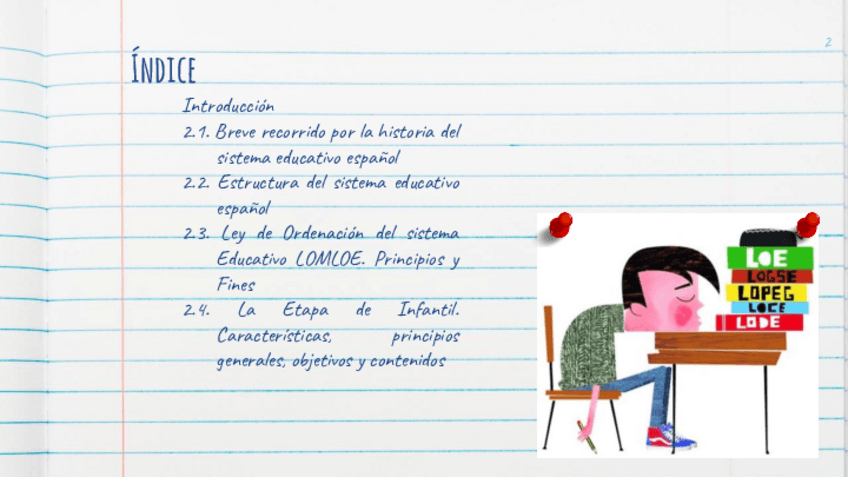 2
ÍNDICE
Introducción
2.1. Breve recorrido por la historia del
sistema educativo español
2.2. Estructura del sistema educativo
español
2.3. Ley de Ordenación del sistema
Educativo LOMLOE. Principios y
Fines
2.4. La Etapa de Infantil.
Características, principios
generales, objetivos y contenidos
LOE
LOGSE
LOPEG
LOCE
LODE